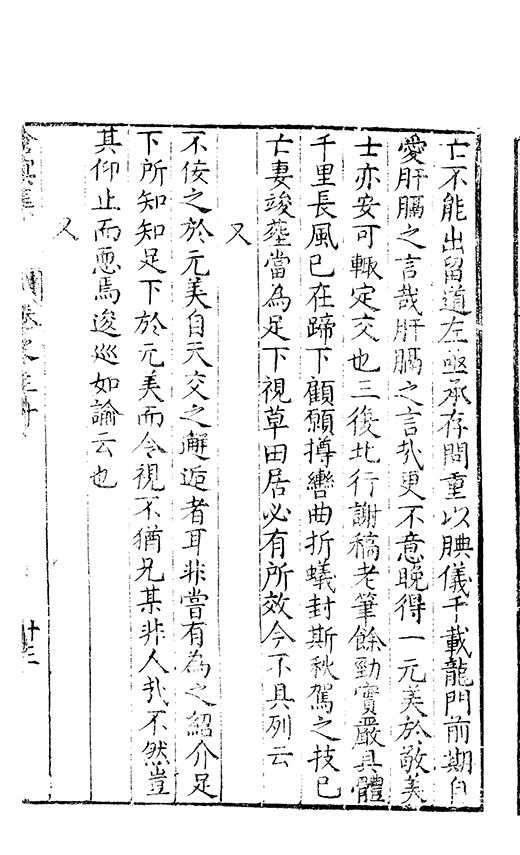 亡不能出留道左亟承存問重以腆儀千載龍門前期自
愛肝膈之言哉肝膈之言哉更不意晚得一元美於敬美
士亦安可輙定交也三後北行謝稿老筆餘勁實嚴具體
千里長風已在蹄下顧願摶轡曲折蟻封斯秋駕之技已
亡妻竣塟當為足下視草田居必有所效今不具列云
又
不佞之於元美自天交之邂逅者耳非嘗有為之紹介足
下所知知足下於元美而令視不猶兄某非人哉不然豈
其仰止而慝焉逡巡如諭云也
又
卷之三十
十三